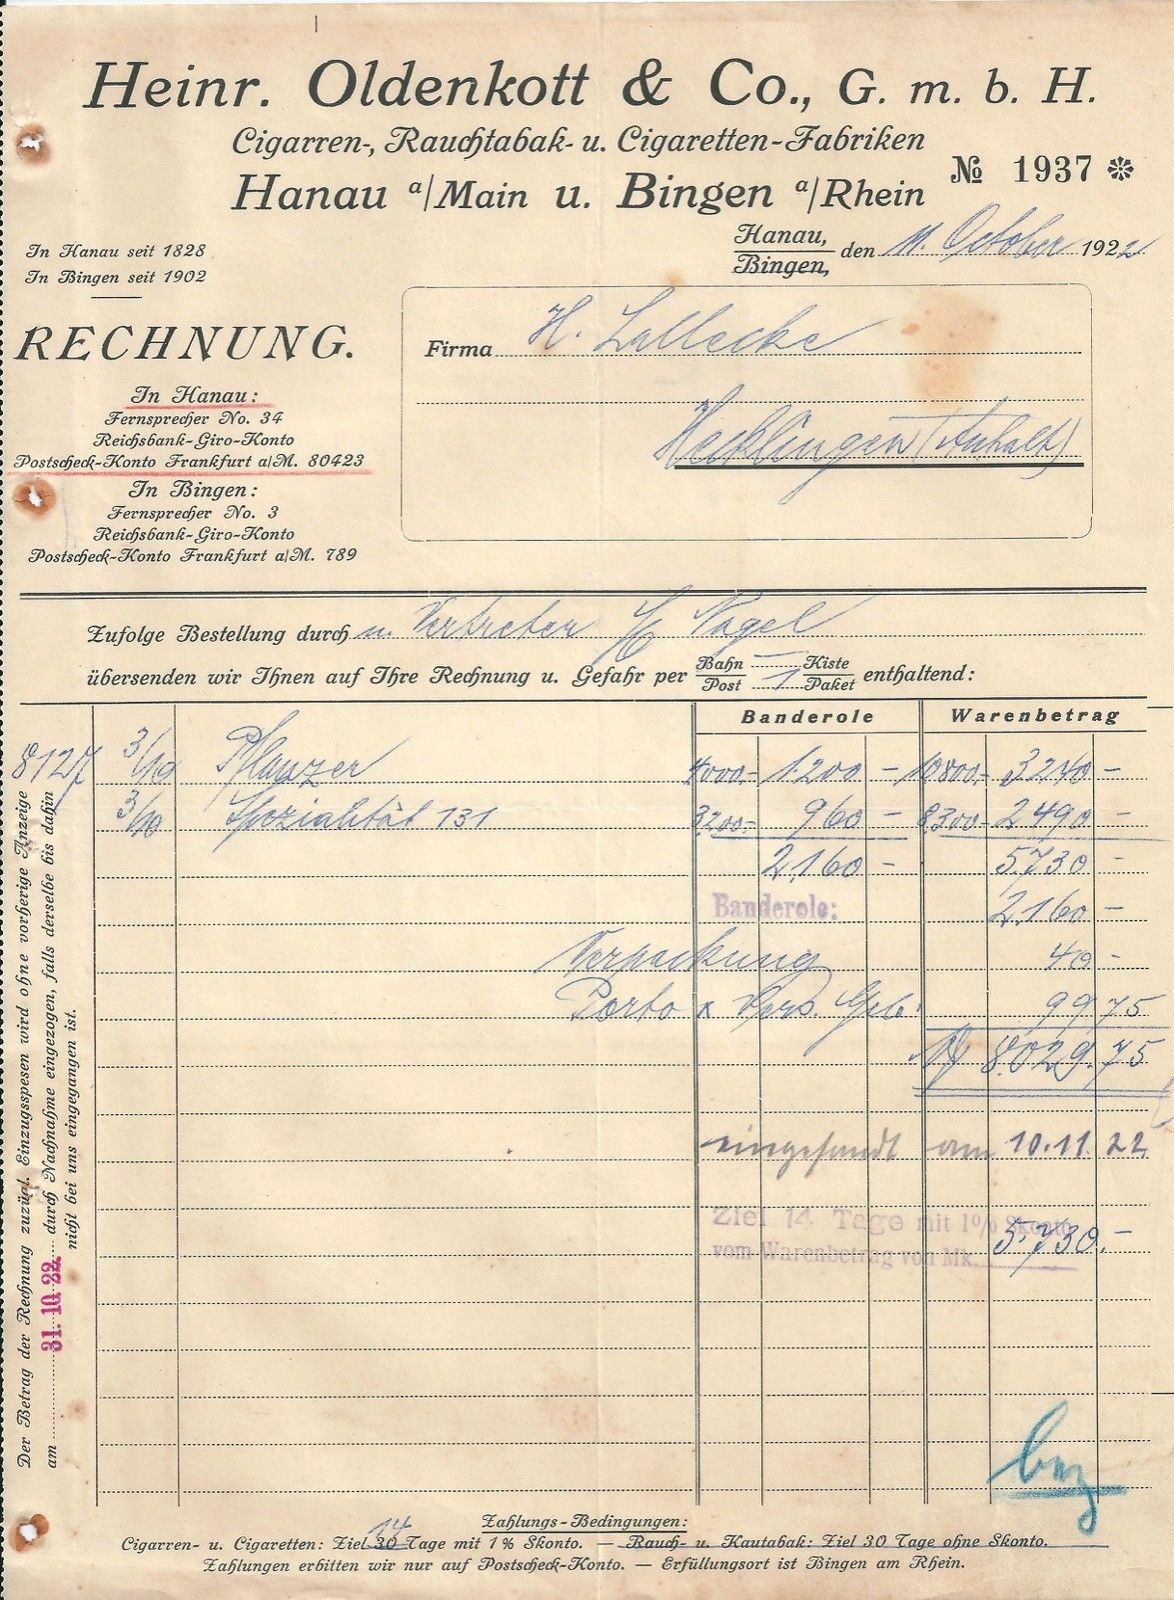 Heinr. Oldenkott & Co., G. m. b. H.
Cigarren-, Rauchtabak- u. Cigaretten-Fabriken
Hanau a/Main u. Bingen a/Rhein
№ 1937 ❊
In Hanau seit 1828
In Bingen seit 1902
Hanau,
Bingen,
den 11. October 1922
RECHNUNG.
Firma H. Lallecke
Hecklingen (Anhalt)
In Hanau:
Fernsprecher No. 34
Reichsbank-Giro-Konto
Postscheck-Konto Frankfurt a/M. 80423
In Bingen:
Fernsprecher No. 3
Reichsbank-Giro-Konto
Postscheck-Konto Frankfurt a/M. 789
Zufolge Bestellung durch u. Vertreter H Nagel
übersenden wir Ihnen auf Ihre Rechnung u. Gefahr per Bahn/Post 1 Kiste/Paket enthaltend:
Banderole Warenbetrag
8127 3/10 Pflanzer 4000.- 1.200 - 10800.- 3240 -
3/10 Spezialität 131 3200.- 960 - 8300.- 2490 -
2.160 - 5.730 -
Banderole: 2.160 -
Verpackung 40 -
Porto & Vers. Geb. 99 75
M 8.029.75
eingesandt am 10.11.22
Ziel 14 Tage mit 1% Skonto
vom Warenbetrag von Mk. 5.730.-
bez
Der Betrag der Rechnung zuzügl. Einzugsspesen wird ohne vorherige Anzeige
am 31.10.22 durch Nachnahme eingezogen, falls derselbe bis dahin
nicht bei uns eingegangen ist.
Zahlungs-Bedingungen:
14
Cigarren- u. Cigaretten: Ziel 30 Tage mit 1% Skonto. — Rauch- u. Kautabak: Ziel 30 Tage ohne Skonto.
Zahlungen erbitten wir nur auf Postscheck-Konto. — Erfüllungsort ist Bingen am Rhein.